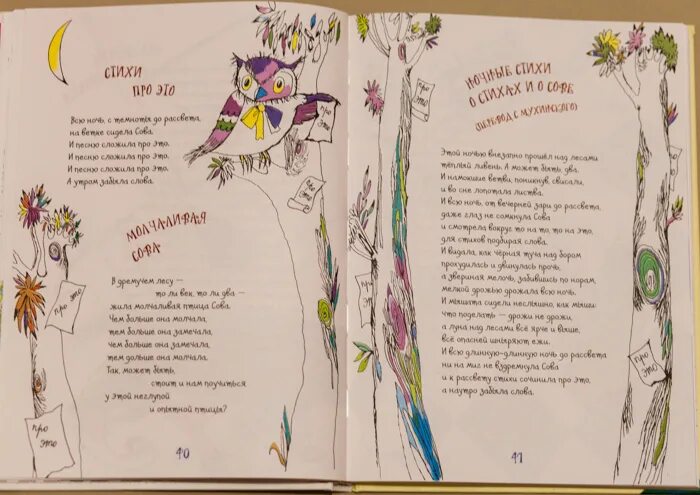 Стихи
про это
Всю ночь, с темноты до рассвета,
на ветке сидела Сова.
И песню сложила про это.
И песню сложила про это.
И песню сложила про это.
А утром забыла слова.
Про
это
про
это
Молчаливая
сова
В дремучем лесу —
то ли век, то ли два —
жила молчаливая птица Сова.
Чем больше она молчала,
тем больше она замечала,
чем больше она замечала,
тем дольше она молчала.
Так, может быть,
стоит и нам поучиться
у этой неглупой
и опытной птицы?
про это
про
это
40
Ночные стихи
о стихах и о сове
(перевод с мухинского)
Этой ночью внезапно прошёл над лесами
тёплый ливень. А может быть, два.
И намокшие ветви, поникнув, свисали,
и во сне лопотала листва.
И всю ночь, от вечерней зари до рассвета,
даже глаз не сомкнула Сова
и смотрела вокруг то на то, то на это,
для стихов подбирая слова.
И видала, как чёрная туча над бором
прохудилась и двинулась прочь,
а звериная мелочь, забившись по норам,
мелкой дрожью дрожала всю ночь.
И мышата сидели неслышно, как мыши:
что поделать — дрожи не дрожи,
а луна над лесами всё ярче и выше,
всё опасней шныряют ежи.
И всю длинную-длинную ночь до рассвета
ни на миг не вздремнула Сова
и к рассвету стихи сочинила про это,
а наутро забыла слова.
про
это
про
это
про
это
про
это
41